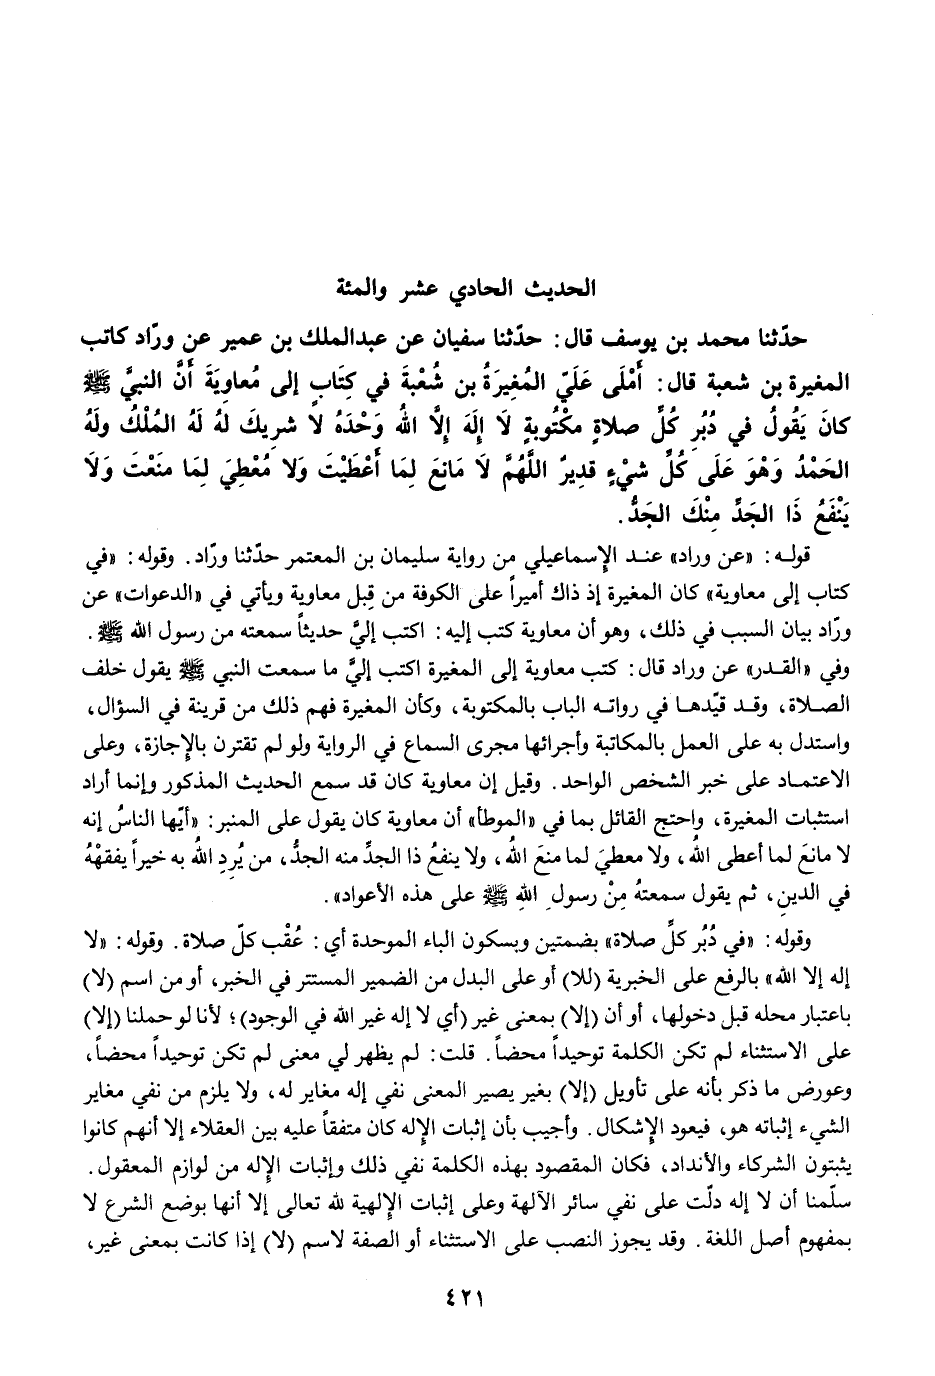 الحديث الحادي عشر والمئة
حدّثنا محمد بن يوسف قال: حدّثنا سفيان عن عبدالملك بن عمير عن ورّاد كاتب
المغيرة بن شعبة قال: أَمْلَى عَلَيّ المُغِيرَةُ بن شُعْبةَ في كِتَابٍ إلى مُعاوِيَةَ أَنَّ النبيَّ ﷺ
كانَ يَقُولُ في دُبُرِ كُلِّ صلاةٍ مكْتُوبةٍ لَا إِلَهَ إِلَّا اللهُ وَحْدَهُ لا شريكَ لَهُ لَهُ المُلْكُ ولَهُ
الحَمْدُ وَهْوَ عَلَى كُلِّ شيْءٍ قديرٌ اللَّهُمَّ لَا مَانعَ لِمَا أَعْطَيْتَ وَلا مُعْطِيَ لِمَا منَعْتَ وَلَا
يَنْفَعُ ذَا الجَدِّ مِنْكَ الجَدُّ.
قولـه: «عن وراد» عنـد الإسماعيلي من رواية سليمان بن المعتمر حدّثنا ورّاد. وقوله: «في
كتاب إلى معاوية» كان المغيرة إذ ذاك أميراً على الكوفة من قِبل معاوية ويأتي في «الدعوات» عن
ورّاد بيان السبب في ذلك، وهو أن معاوية كتب إليه: اكتب إليَّ حديثاً سمعته من رسول الله ﷺ.
وفي «القـدر» عن وراد قال: كتب معاوية إلى المغيرة اكتب إليَّ ما سمعت النبي ﷺ يقول خلف
الصـلاة، وقـد قيّدهـا في رواتـه الباب بالمكتوبة، وكأن المغيرة فهم ذلك من قرينة في السؤال،
واستدل به على العمل بالمكاتبة وأجرائها مجرى السماع في الرواية ولو لم تقترن بالإجازة، وعلى
الاعتمـاد على خبر الشخص الواحد. وقيل إن معاوية كان قد سمع الحديث المذكور وإنما أراد
استثبات المغيرة، واحتج القائل بما في «الموطأ» أن معاوية كان يقول على المنبر: «أيّها الناسُ إنه
لا مانعَ لما أعطى اللهُ، ولا معطيَ لما منعَ اللهُ، ولا ينفعُ ذا الجدِّ منه الجدُّ، من يُردِ اللهُ به خيراً يفقهْهُ
في الدينِ، ثم يقول سمعتهُ مِنْ رسولِ اللهِ ﷺ على هذه الأعواد».
وقوله: «في دُبُر كلِّ صلاة» بضمتين وبسكون الباء الموحدة أي: عُقْب كلّ صلاة. وقوله: «لا
إله إلا الله» بالرفع على الخبرية (للا) أو على البدل من الضمير المستتر في الخبر، أو من اسم (لا)
باعتبار محله قبل دخولها، أو أن (إلا) بمعنى غير (أي لا إله غير الله في الوجود)؛ لأنا لو حملنا (إلا)
على الاستثناء لم تكن الكلمة توحيداً محضاً. قلت: لم يظهر لي معنى لم تكن توحيداً محضاً،
وعورض ما ذكر بأنه على تأويل (إلا) بغير يصير المعنى نفي إله مغاير له، ولا يلزم من نفي مغاير
الشيء إثباته هو، فيعود الإشكال. وأجيب بأن إثبات الإله كان متفقاً عليه بين العقلاء إلا أنهم كانوا
يثبتون الشركاء والأنداد، فكان المقصود بهذه الكلمة نفي ذلك وإثبات الإله من لوازم المعقول.
سلّمنا أن لا إله دلّت على نفي سائر الآلهة وعلى إثبات الإلهية لله تعالى إلا أنها بوضع الشرع لا
بمفهوم أصل اللغة. وقد يجوز النصب على الاستثناء أو الصفة لاسم (لا) إذا كانت بمعنى غير،
٤٢١